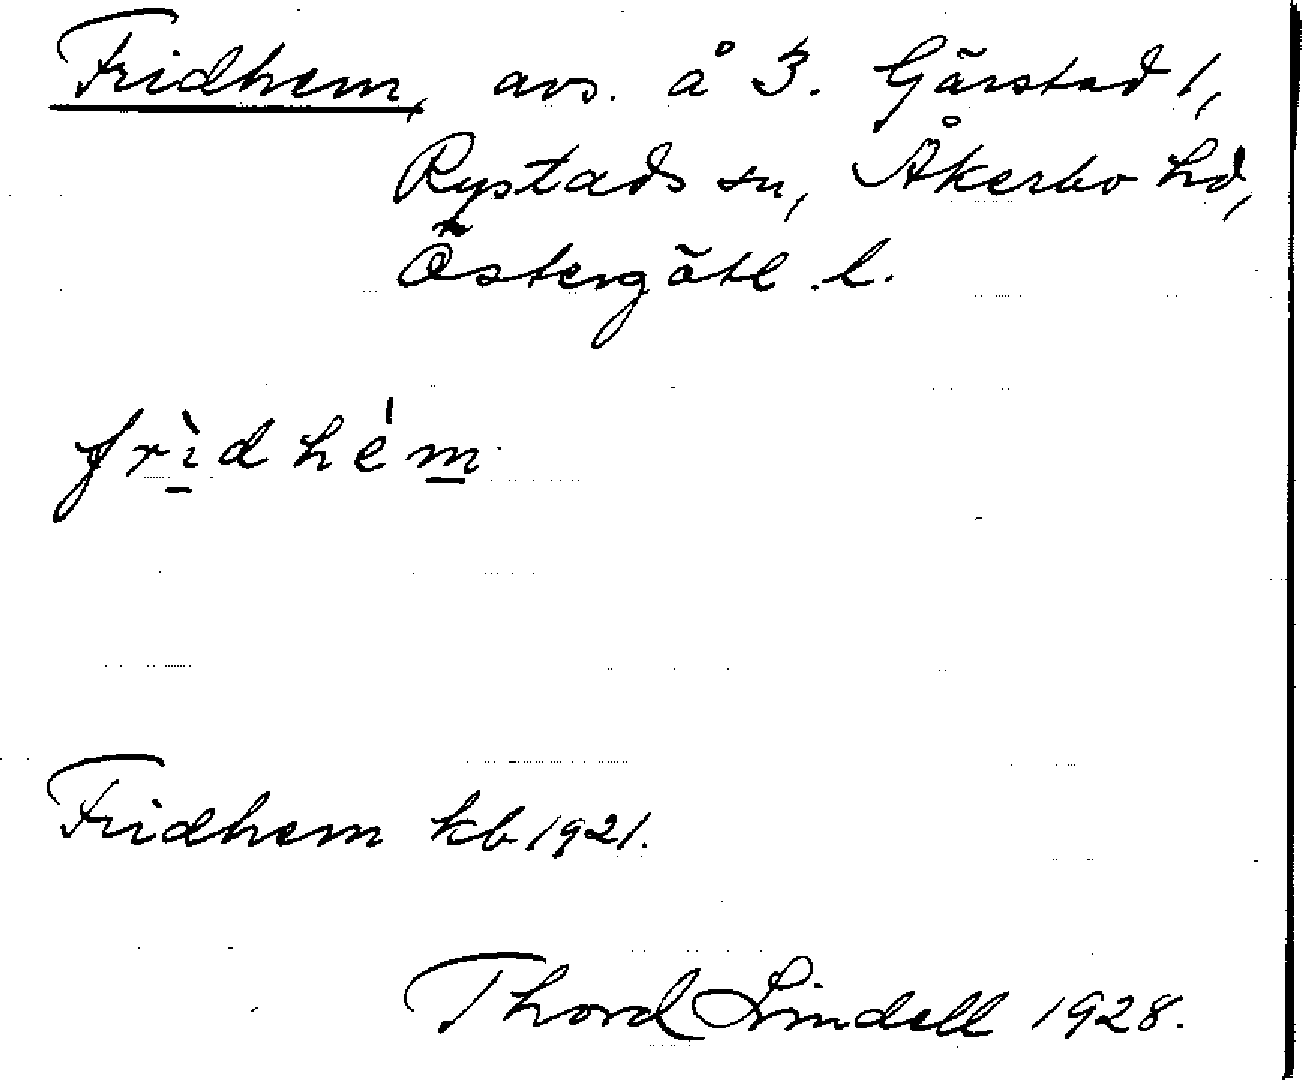 Fridhem, avs. å 3. Gärstad 1,
Rystads sn, Åkerbo hd,
Östergötl. l.
frìdhém
Fridhem kb 1921.
Thord Lindell 1928.